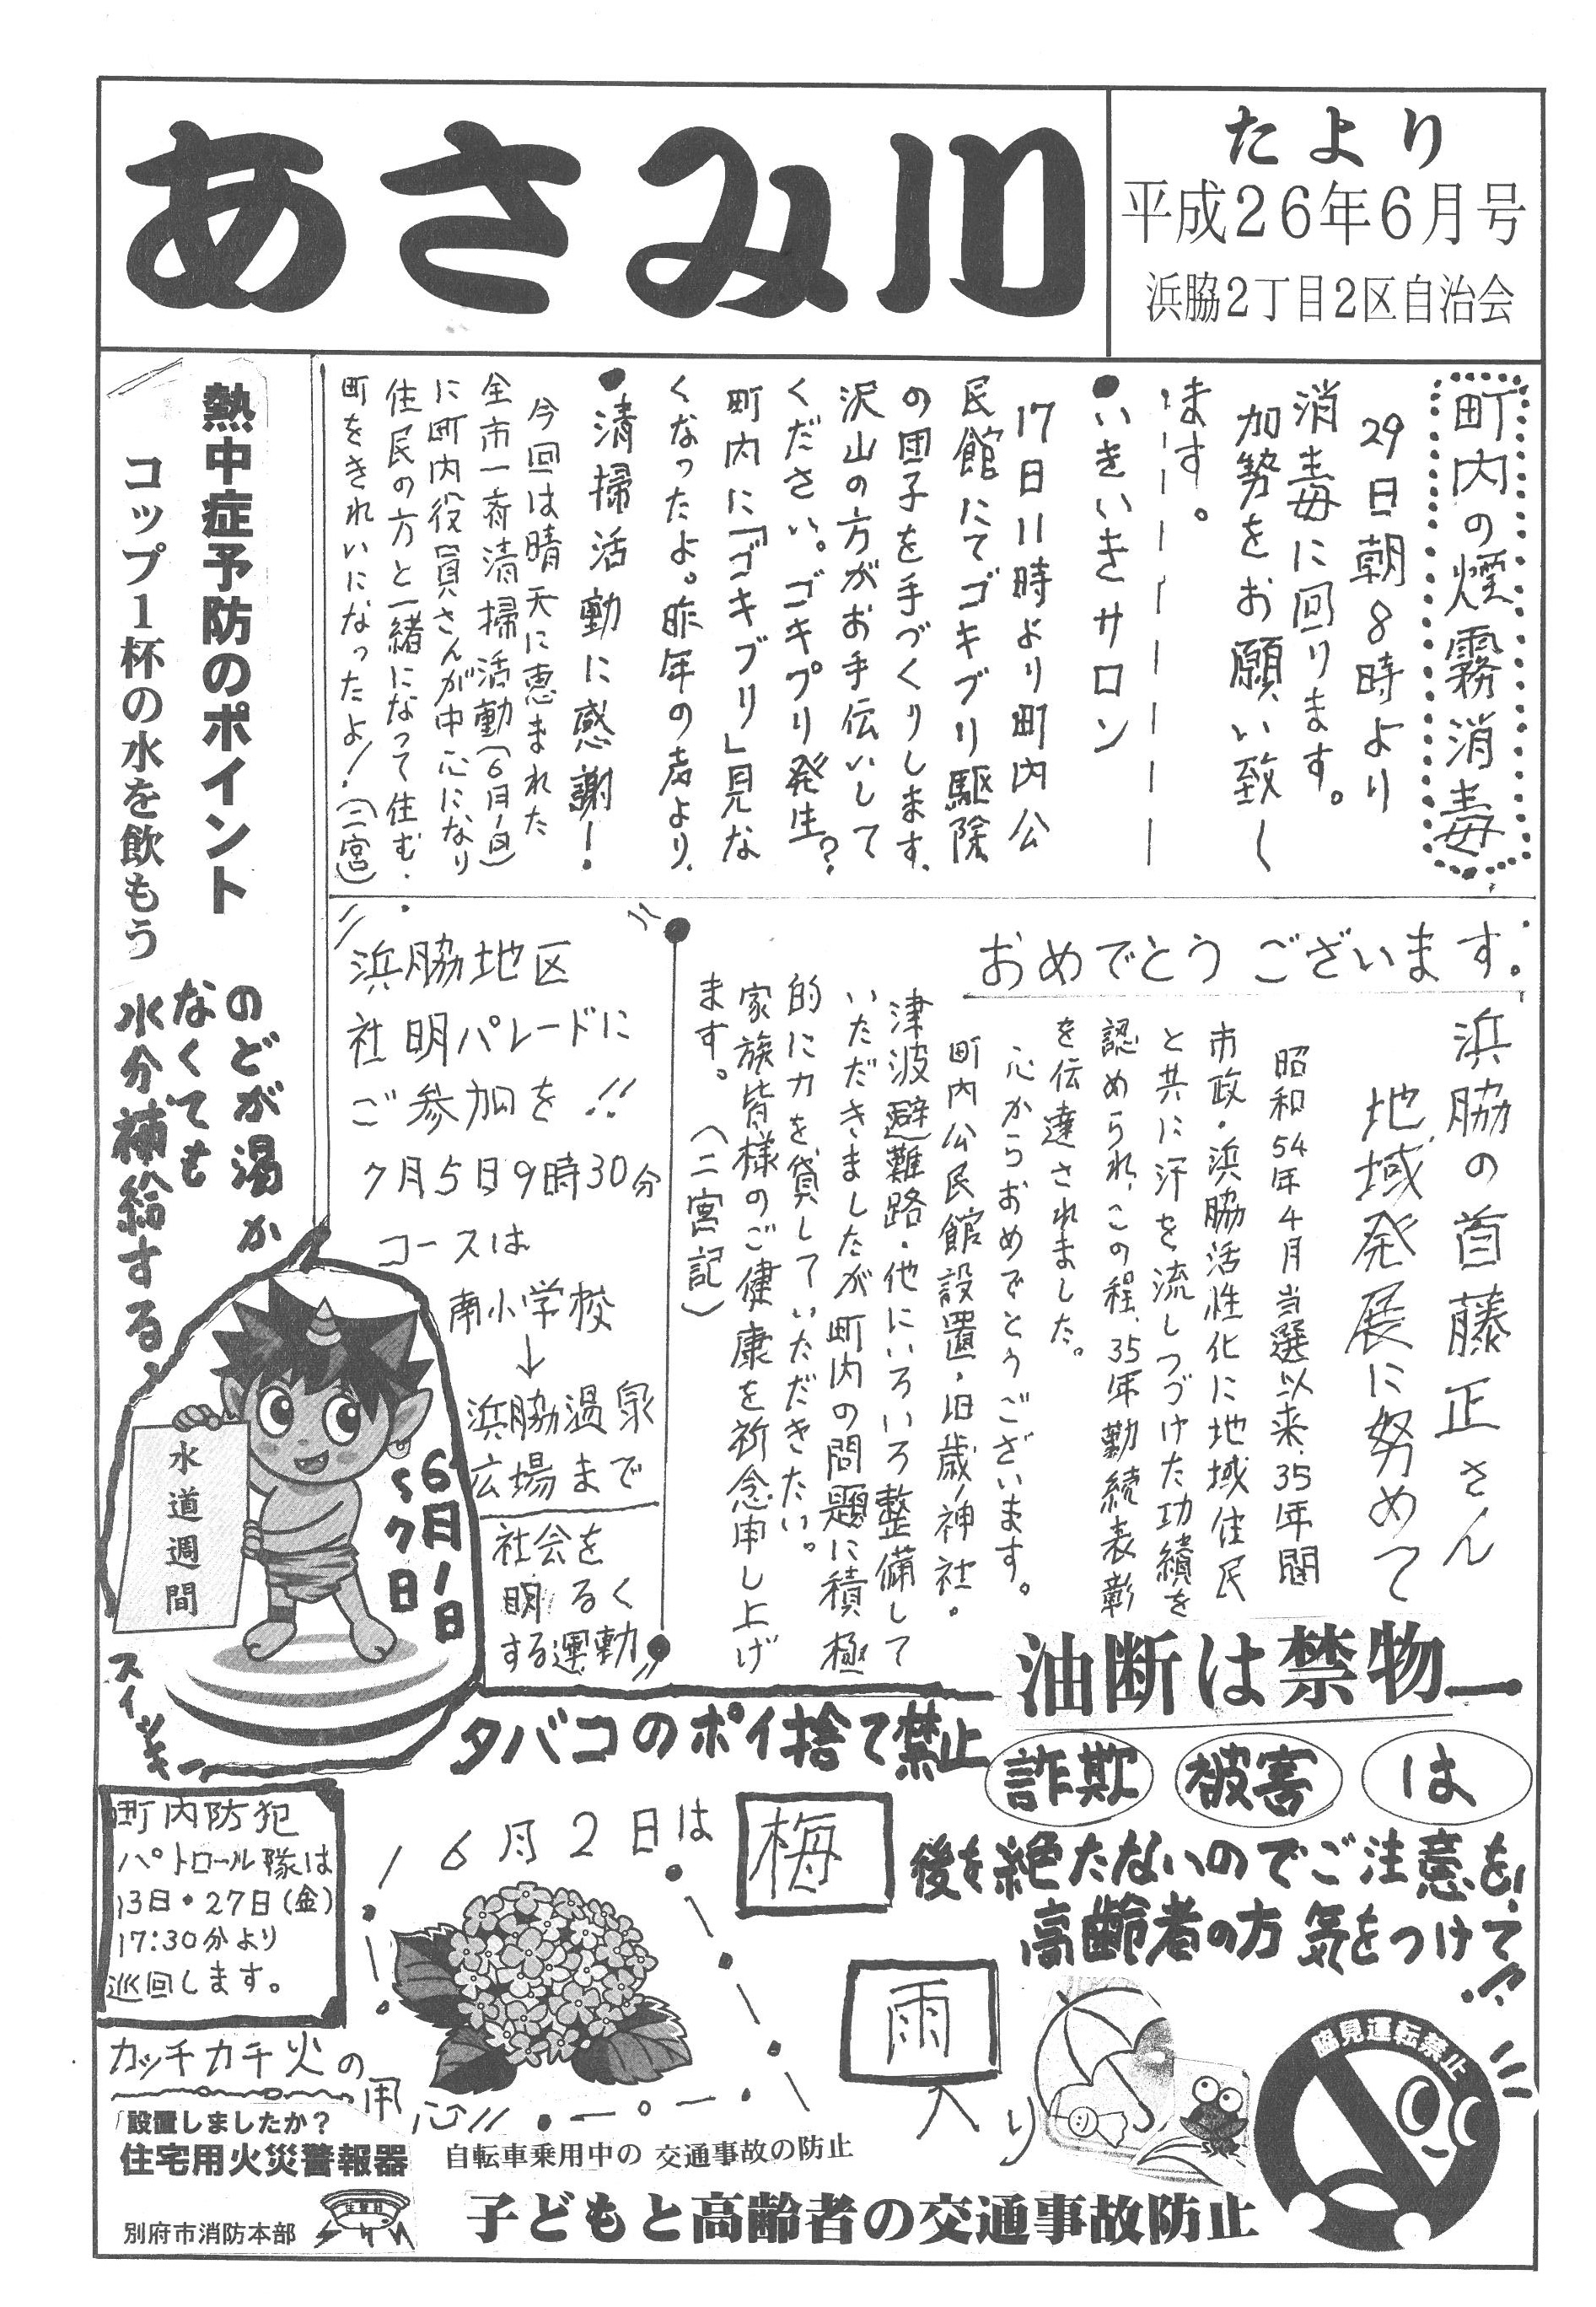 あさみ川
たより
平成26年6月号
浜脇2丁目2区自治会
町内の煙霧消毒
29日朝8時より
消毒に回ります。
加勢をお願い致し
ます。
●いきいきサロン
17日11時より町内公
民館にてゴキブリ駆除
の団子を手づくりします、
沢山の方がお手伝いして
ください。ゴキブリ発生?
町内に「ゴキブリ」見な
くなったよ。昨年の声より、
●清掃活動に感謝!
今回は晴天に恵まれた
全市一斉清掃活動(6月1日)
に町内役員さんが中心になり
住民の方と一緒になって住む
町をきれいになったよ!(二宮)
熱中症予防のポイント
コップ1杯の水を飲もう
のどが渇か
なくても
水分補給する、
おめでとうございます。
浜脇の首藤正さん
地域発展に努めて
昭和54年4月当選以来、35年間
市政・浜脇活性化に地域住民
と共に汗を流しつづけた功績を
認められ、この程、35年勤続表彰
を伝達されました。
心からおめでとうございます。
町内公民館設置・旧歳ノ神社・
津波避難路・他にいろいろ整備して
いただきましたが町内の問題に積極
的に力を貸していただきたい。
家族皆様のご健康を祈念申し上げ
ます。
(二宮記)
浜脇地区
社明パレードに
ご参加を!!
7月5日9時30分
コースは
南小学校
↓
浜脇温泉
広場まで
社会を
明るく
する運動
水道週間
6月1日
〜7日
スイッキー
タバコのポイ捨て禁止
油断は禁物
詐欺 被害 は
後を絶たないのでご注意を!
高齢者の方気をつけて!!
町内防犯
パトロール隊は
13日・27日(金)
17:30分より
巡回します。
6月2日は
梅
雨
入り
カッチカチ火の
用心!!
「設置しましたか?
住宅用火災警報器
別府市消防本部
自転車乗用中の 交通事故の防止
子どもと高齢者の交通事故防止
脇見運転禁止